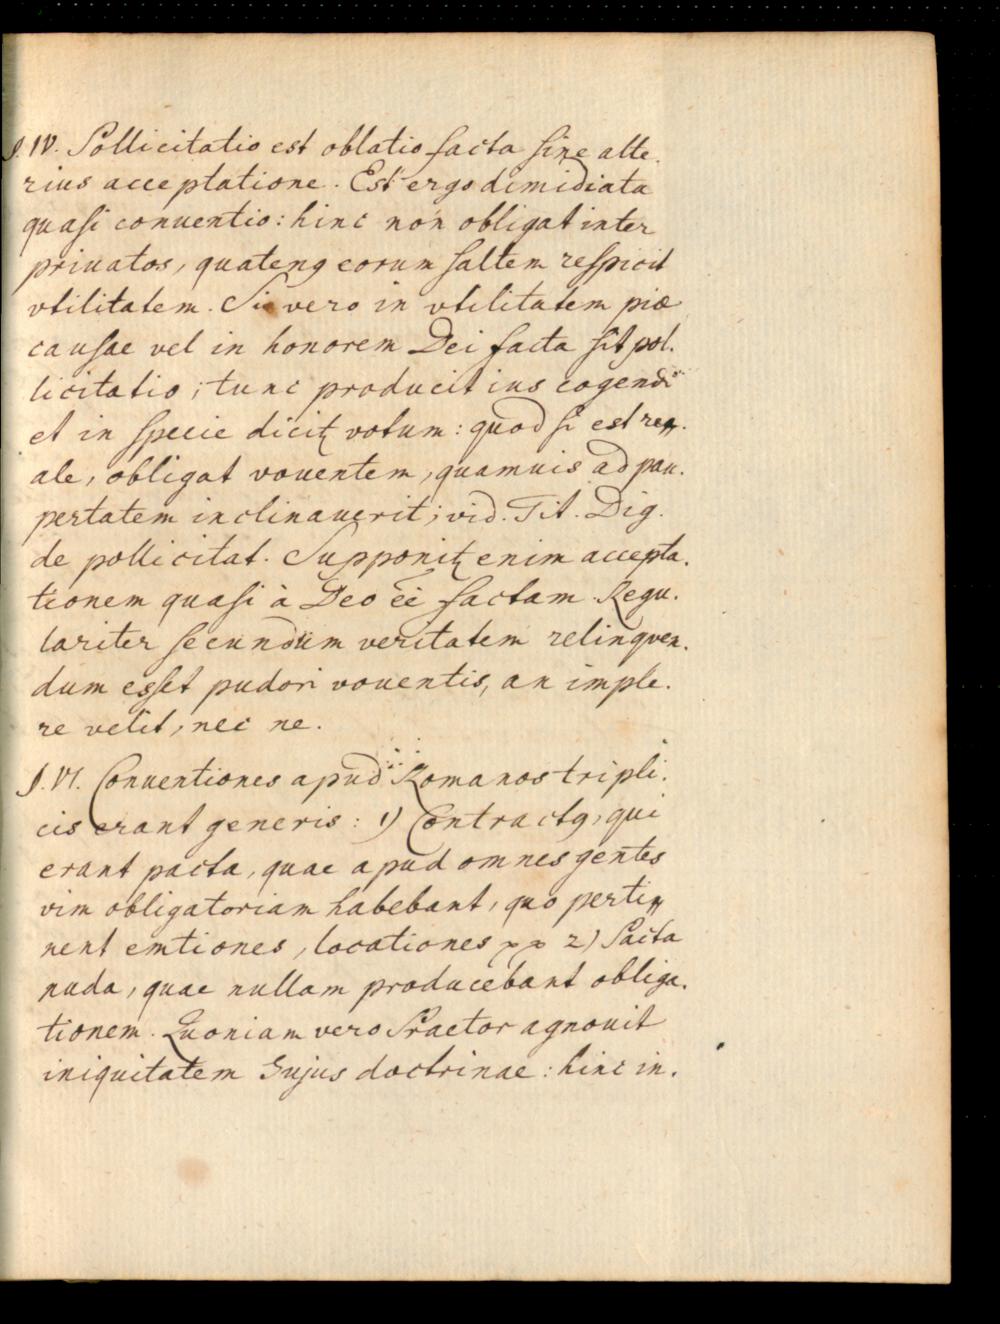 §. IV. Pollicitatio est oblatio facta sine alte.
rius acceptatione. Est ergo dimidiata
quasi conuentio: hinc non obligat inter
priuatos, quatenꝯ eorum saltem respicit
vtilitatem. Si vero in vtilitatem piæ
causae vel in honorem Dei facta sit pol.
licitatio; tunc producit ius cogendi
et in specie dicitꝛ votum: quod si est re.
ale, obligat vouentem, quamuis ad pau.
pertatem inclinauerit; vid. Tit. Dig.
de pollicitat. Supponitꝛ enim accepta.
tionem quasi à Deo eē factam. Regu.
lariter secundum veritatem relinqven.
dum esset pudori vouentis, an imple.
re velit, nec ne.
§. VI. Conuentiones apud Romanos tripli.
cis erant generis: 1) Contractꝯ, qui
erant pacta, quae apud omnes gentes
vim obligatoriam habebant, quo perti
nent emtiones, locationes pp 2) Pacta
nuda, quae nullam producebant obliga.
tionem. Quoniam vero Praetor agnouit
iniquitatem hujus doctrinae: hinc in.